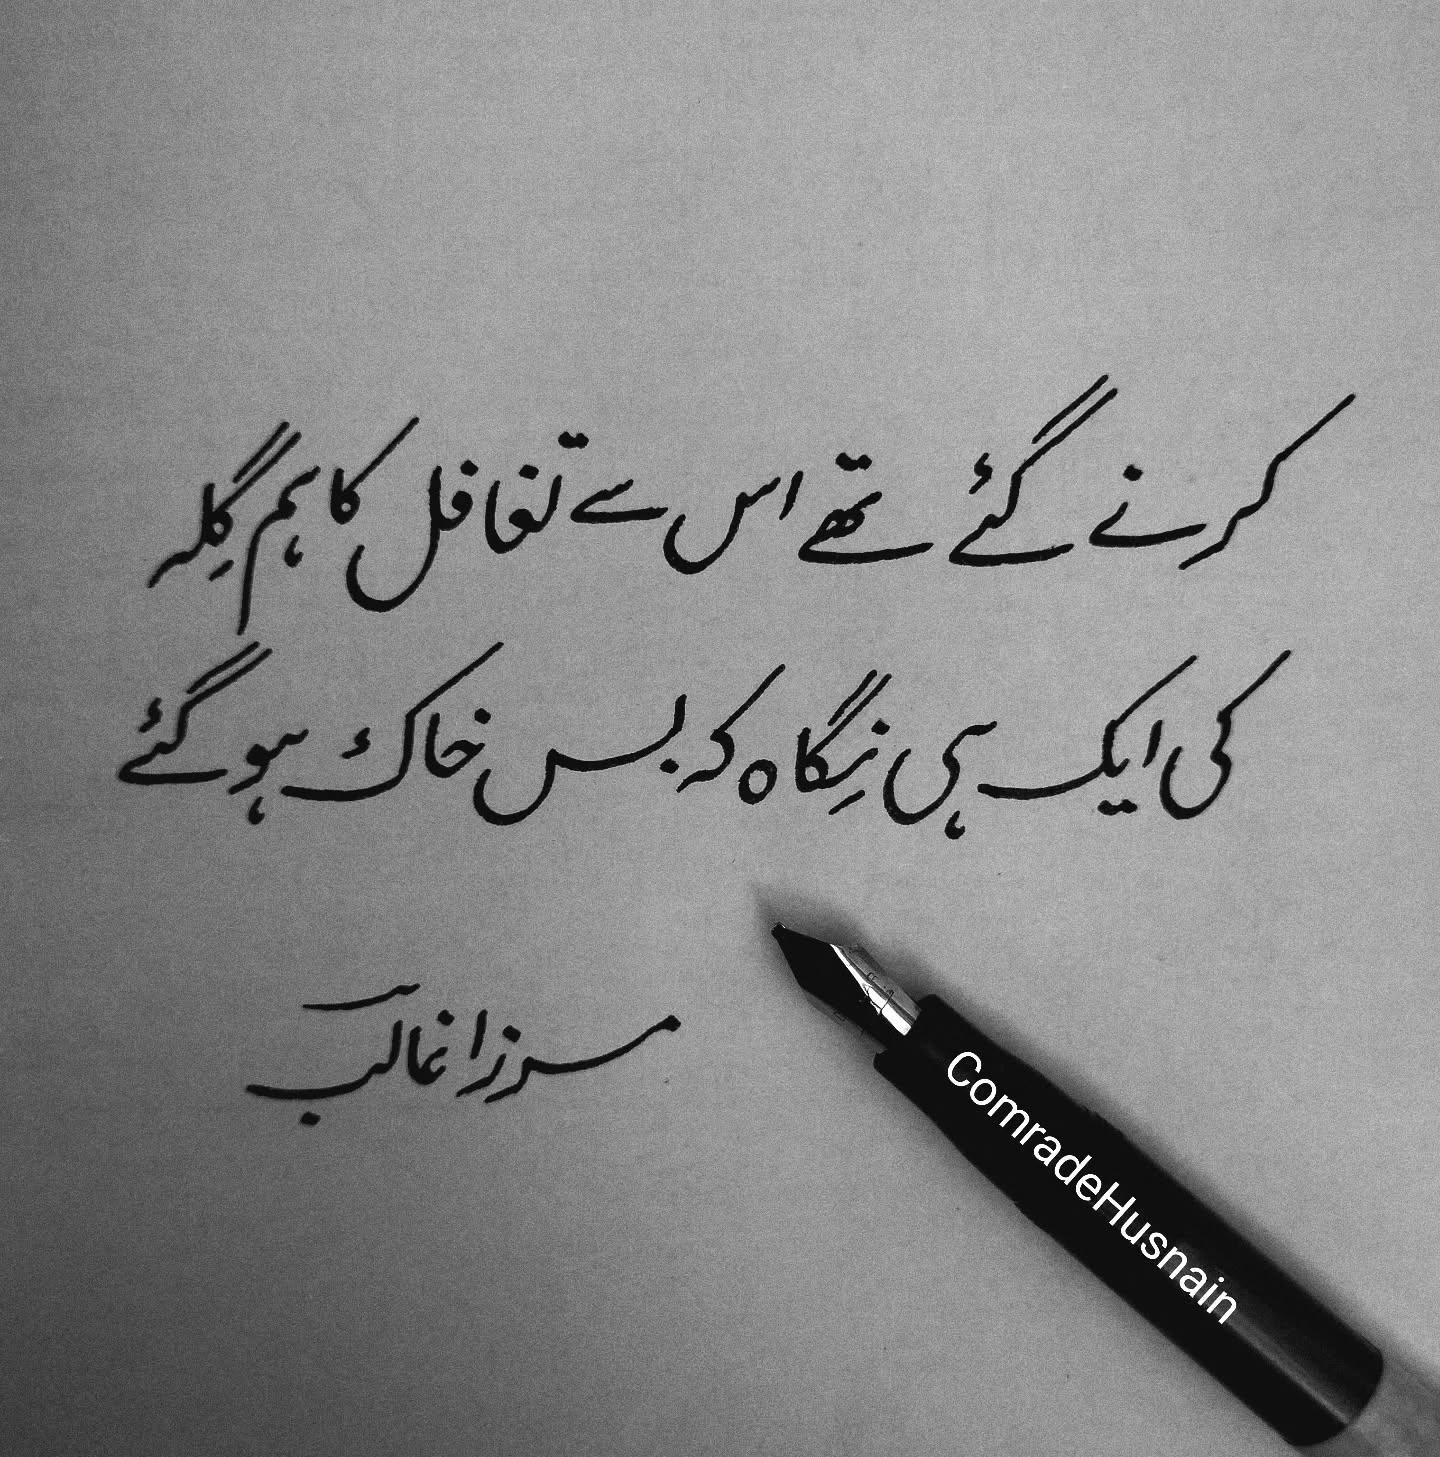 کرنے گئے تھے اس سے تغافل کا ہم گِلہ
کی ایک ہی نِگاہ کہ بس خاک ہو گئے
مرزا غالب
ComradeHusnain